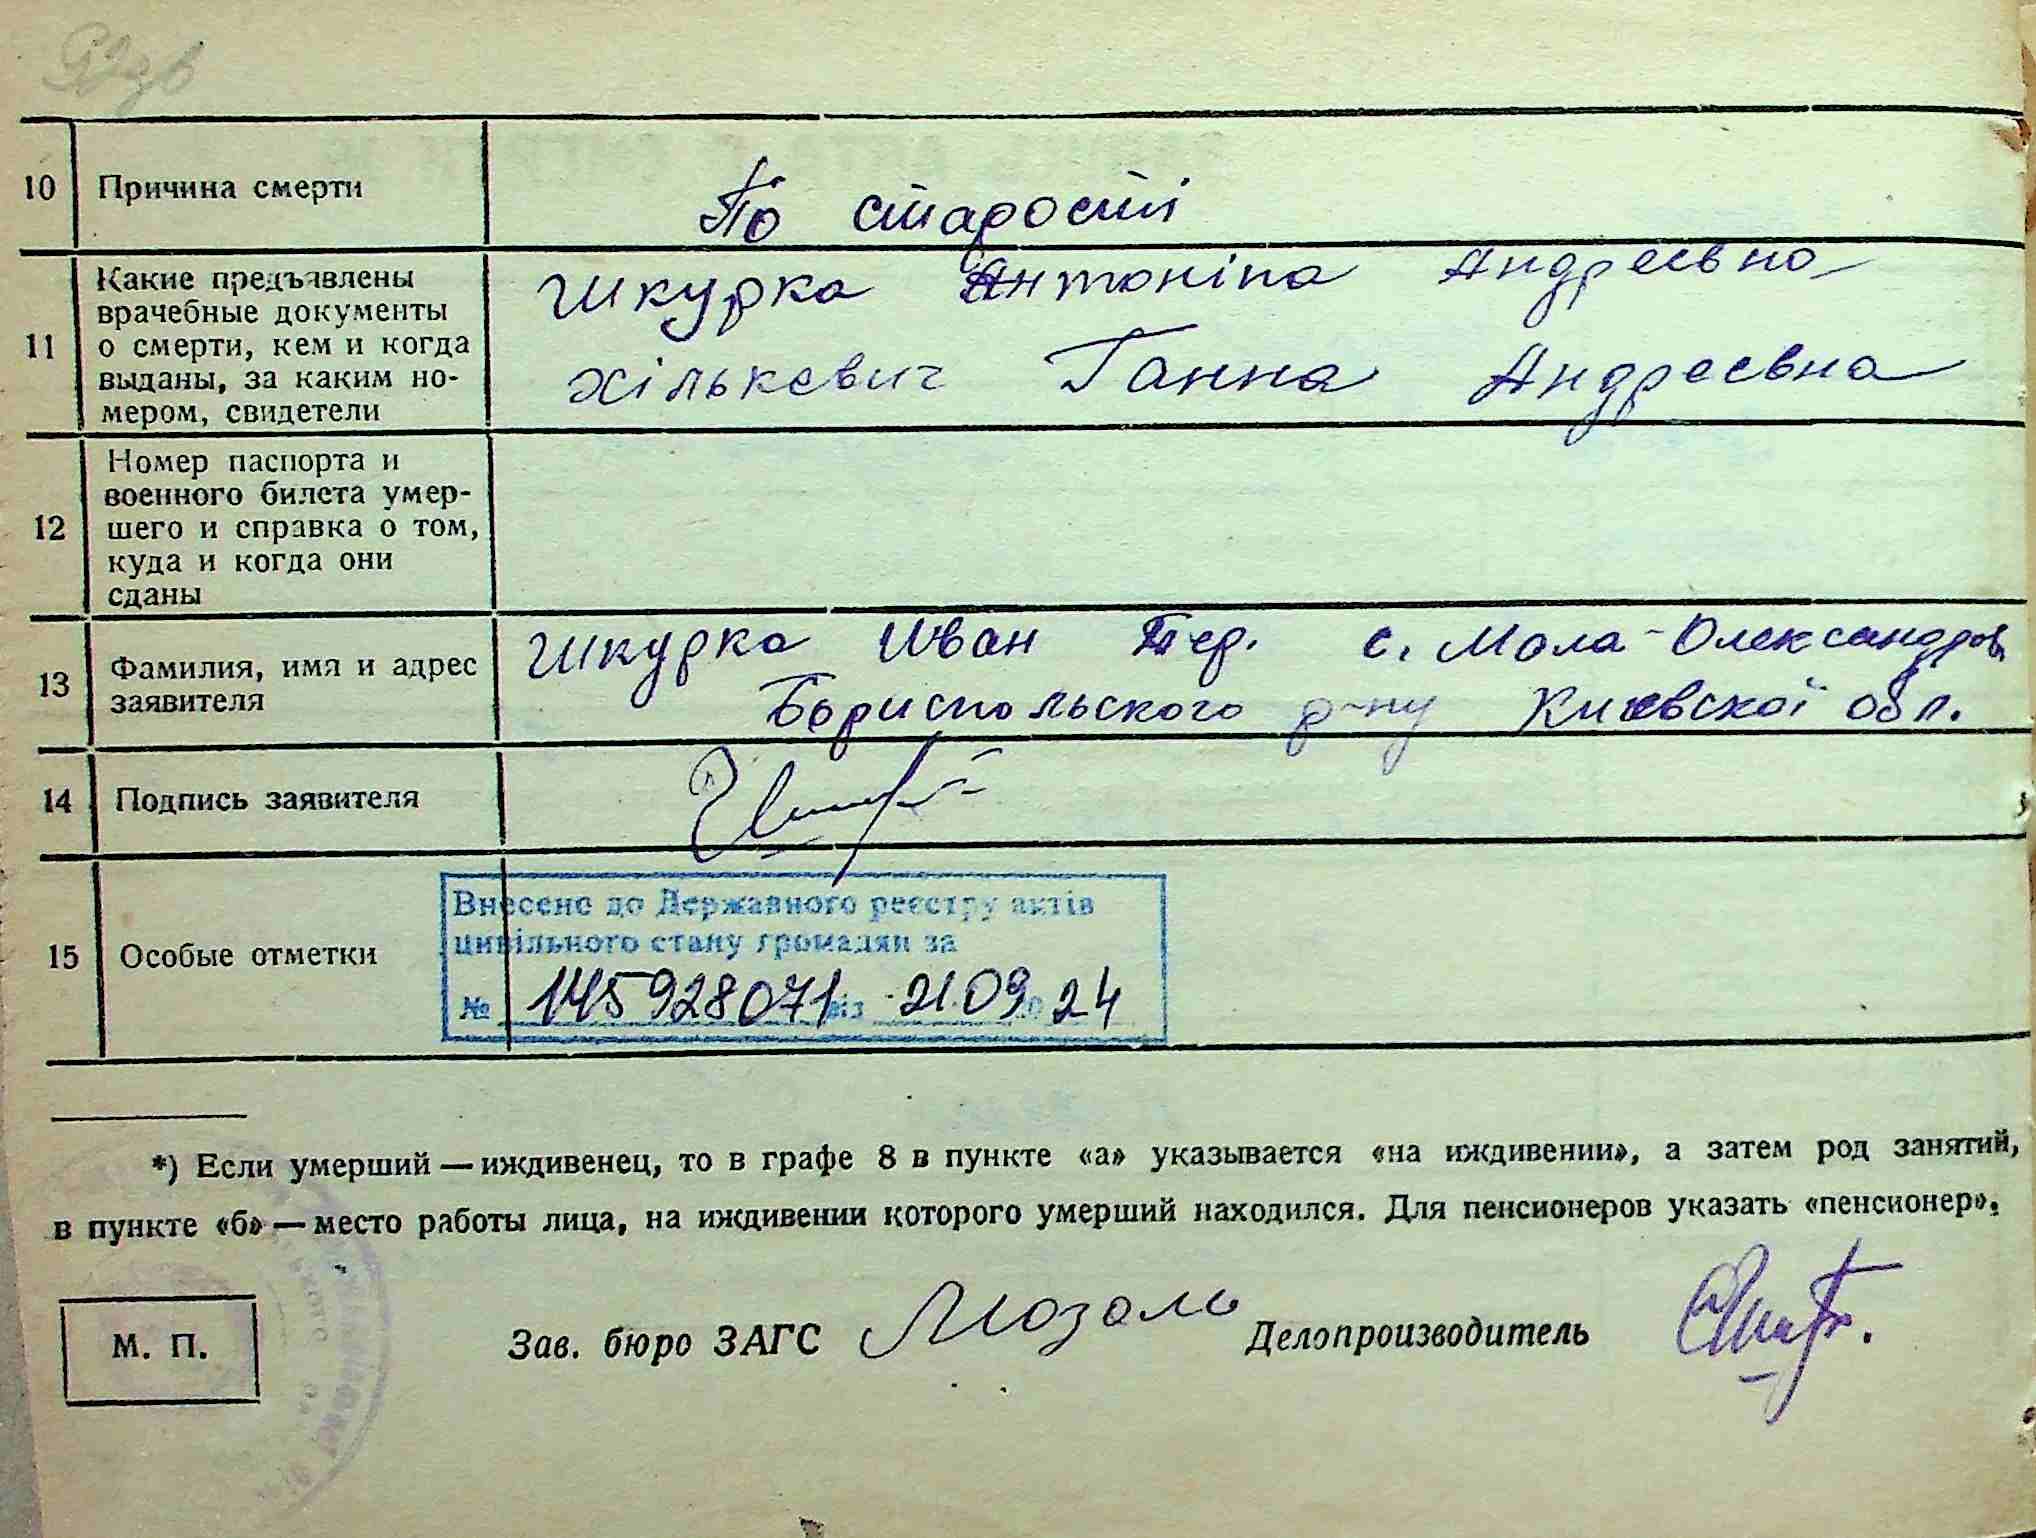 10 Причина смерти По старості
11 Какие предъявлены
врачебные документы
о смерти, кем и когда
выданы, за каким но-
мером, свидетели
Шкурка Антоніна Андреевна
Хількевич Ганна Андреевна
12 Номер паспорта и
военного билета умер-
шего и справка о том,
куда и когда они
сданы
13 Фамилия, имя и адрес
заявителя
Шкурка Иван с. Мала-Олександров
Бориспольского р-ну Киевскої обл.
14 Подпись заявителя
15 Особые отметки
Внесено до Державного реєстру актів
цивільного стану громадян за
№ 145928071 від 21 09 20 24
*) Если умерший — иждивенец, то в графе 8 в пункте «а» указывается «на иждивении», а затем род занятий,
в пункте «б» — место работы лица, на иждивении которого умерший находился. Для пенсионеров указать «пенсионер».
М. П.
Зав. бюро ЗАГС Мозоль Делопроизводитель